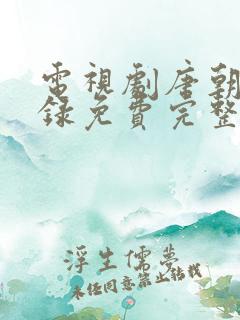 電視劇唐朝
錄免費完整
浮生儒夢
未经同意禁止转载